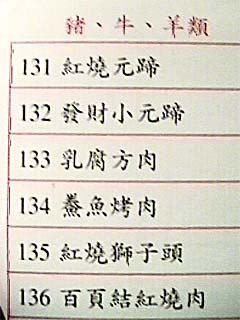 豬、牛、羊類
131 紅燒元蹄
132 發財小元蹄
133 乳腐方肉
134 鯗魚烤肉
135 紅燒獅子頭
136 百頁結紅燒肉